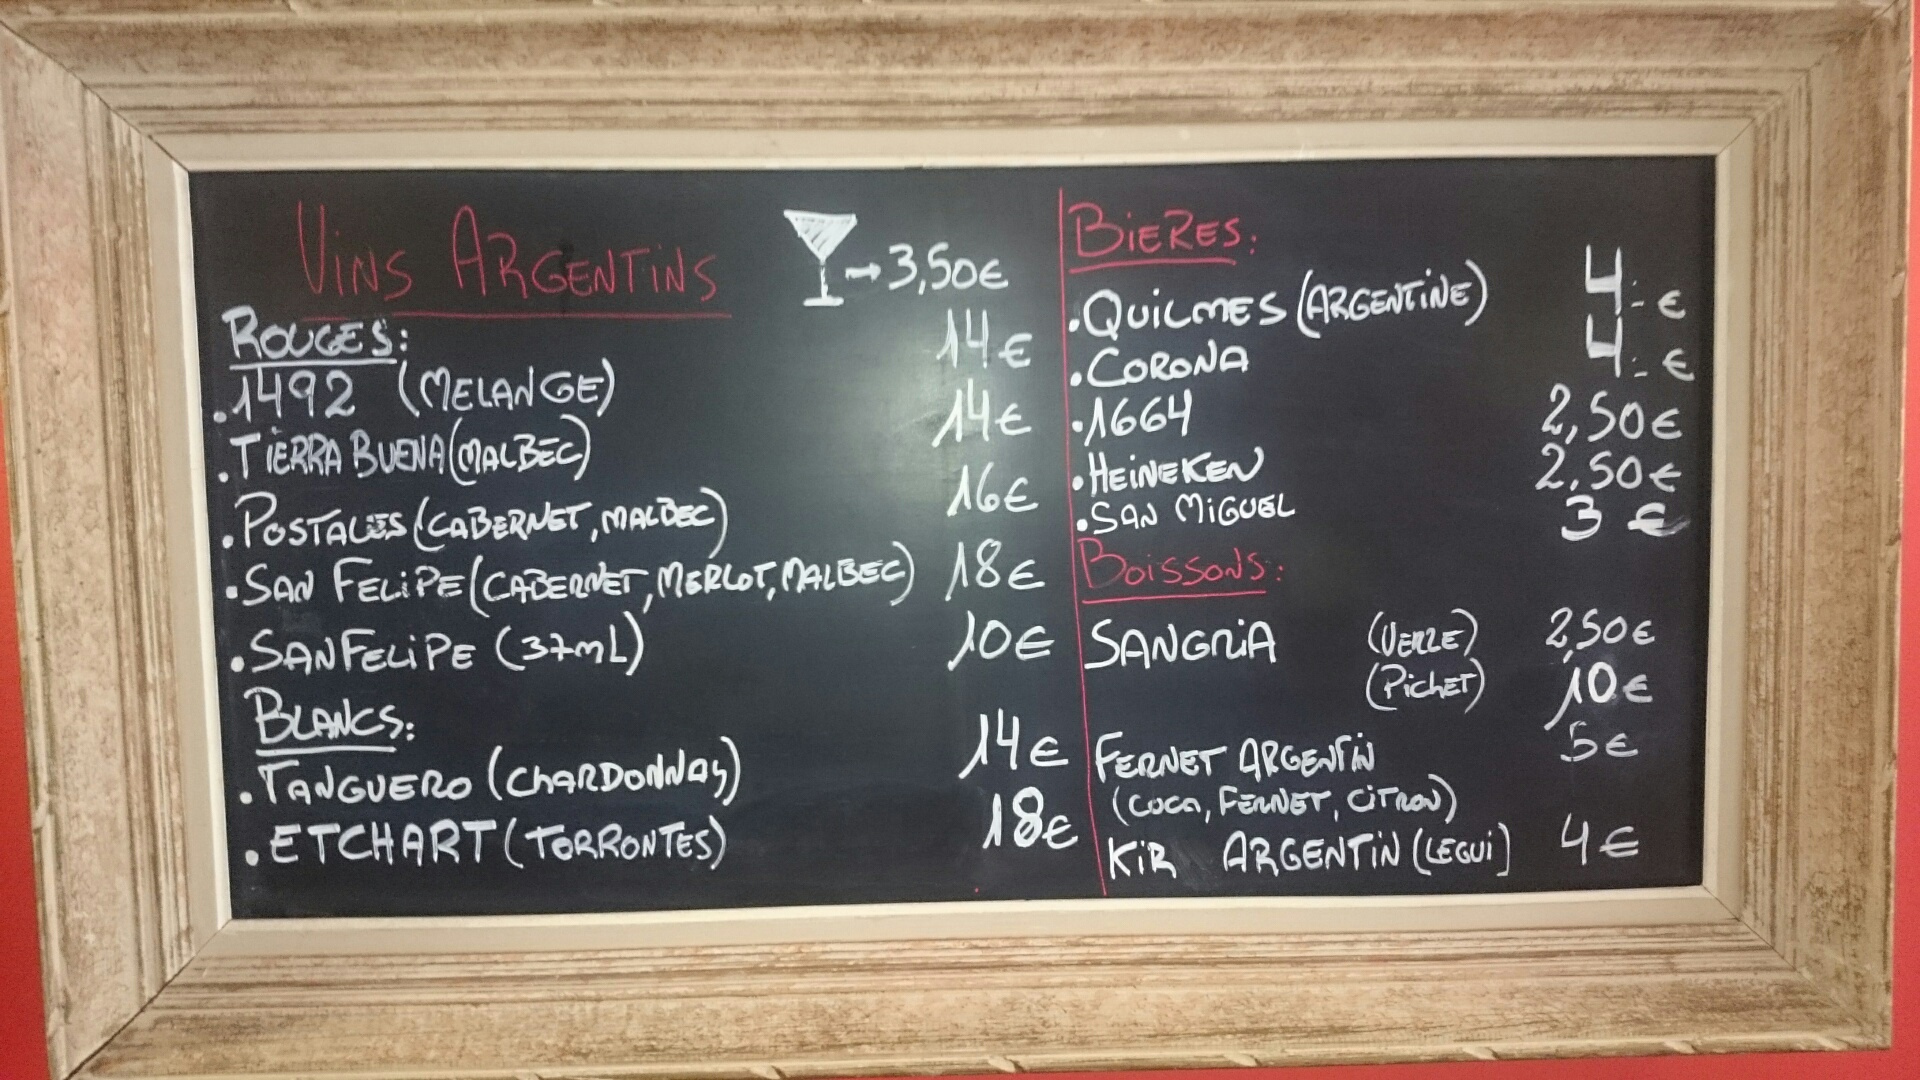 VINS ARGENTINS → 3,50€
ROUGES:
.1492 (MELANGE) 14€
.TIERRA BUENA (MALBEC) 14€
.POSTALES (CABERNET, MALBEC) 16€
.SAN FELIPE (CABERNET, MERLOT, MALBEC) 18€
.SAN FELIPE (37mL) 10€
BLANCS:
.TANGUERO (CHARDONNAY) 14€
.ETCHART (TORRONTES) 18€
BIERES:
.QUILMES (ARGENTINE) 4.- €
.CORONA 4.- €
.1664 2,50€
.HEINEKEN 2,50€
.SAN MIGUEL 3 €
BOISSONS:
SANGRIA (VERRE) 2,50€
(PICHET) 10€
FERNET ARGENTIN 5€
(COCA, FERNET, CITRON)
KIR ARGENTIN (LEGUI) 4€